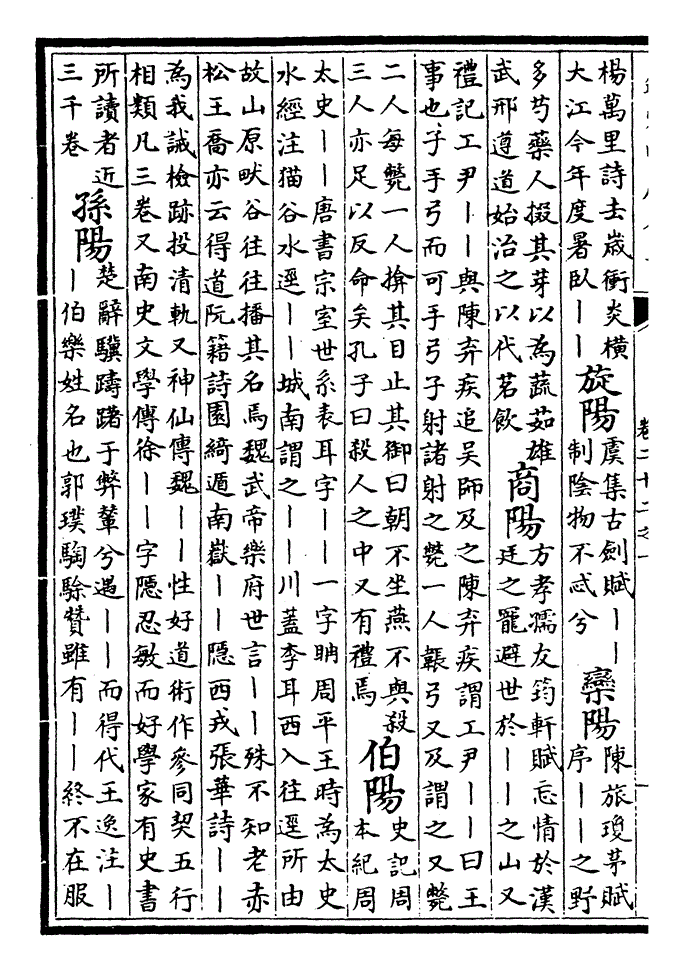 楊萬里詩去歲衝炎橫
大江今年度暑臥丨丨
旋陽
虞集古劍賦丨丨
制陰物不忒兮
欒陽
陳旅瓊茅賦
序丨丨之野
多芍藥人掇其芽以為蔬茹雄
武邢遵道始治之以代茗飲
商陽
方孝孺友筠軒賦忘情於漢
廷之寵避世於丨丨之山又
禮記工尹丨丨與陳弃疾追吳師及之陳弃疾謂工尹丨丨曰王
事也子手弓而可手弓子射諸射之斃一人韔弓又及謂之又斃
二人每斃一人揜其目止其御曰朝不坐燕不與殺
三人亦足以反命矣孔子曰殺人之中又有禮焉
伯陽
史記周
本紀周
太史丨丨唐書宗室世系表耳字丨丨一字聃周平王時為太史
水經注猫谷水逕丨丨城南謂之丨丨川蓋李耳西入往逕所由
故山原畎谷往往播其名焉魏武帝樂府世言丨丨殊不知老赤
松王喬亦云得道阮籍詩園綺遁南嶽丨丨隱西戎張華詩丨丨
為我誡檢跡投清軌又神仙傳魏丨丨性好道術作參同契五行
相類凡三卷又南史文學傳徐丨丨字隱忍敏而好學家有史書
所讀者近
三千卷
孫陽
楚辭驥躊躇于弊輂兮遇丨丨而得代王逸注丨
丨伯樂姓名也郭璞騊駼贊雖有丨丨終不在服
卷二十二之一